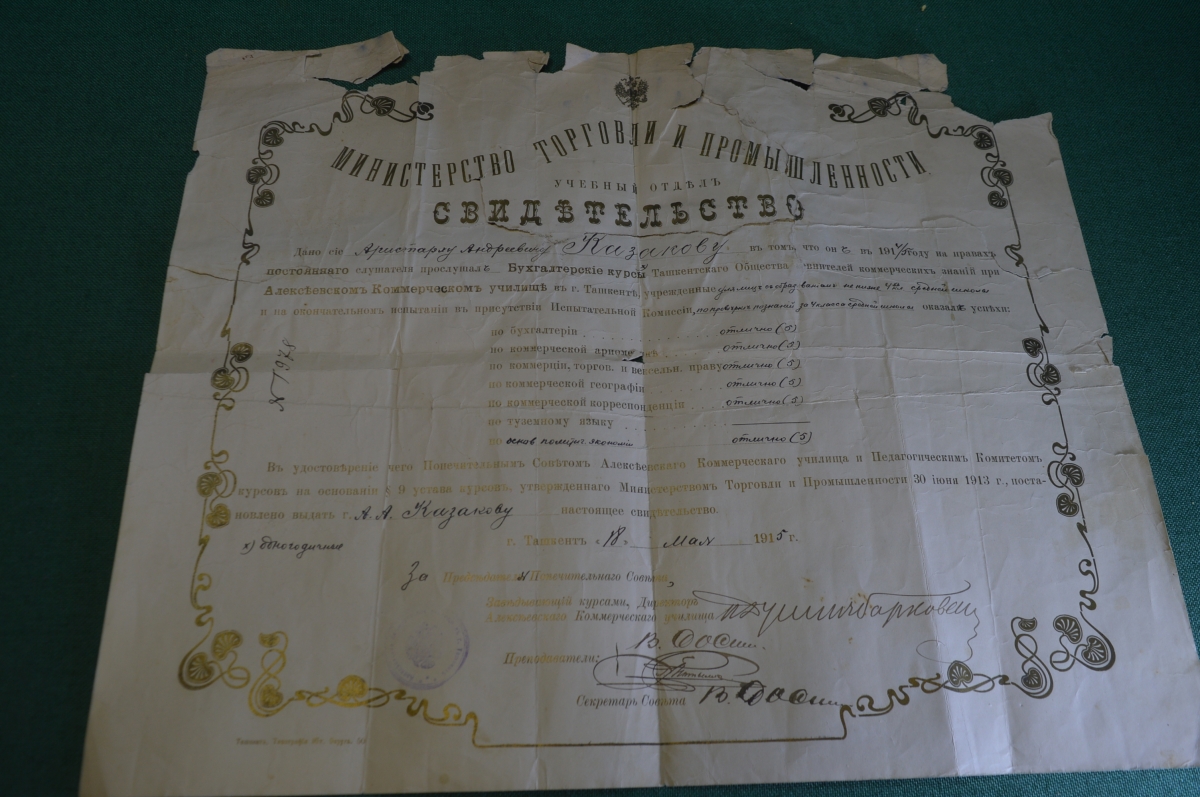 МИНИСТЕРСТВО ТОРГОВЛИ И ПРОМЫШЛЕННОСТИ
УЧЕБНЫЙ ОТДѢЛЪ
СВИДѢТЕЛЬСТВО
Дано сіе Аристарху Андреевичу Казакову въ томъ, что онъ въ 1914/15 году на правахъ
постояннаго слушателя прослушалъ Бухгалтерскіе курсы Ташкентскаго Общества ревнителей коммерческихъ знаній при
Алексѣевскомъ Коммерческомъ училищѣ въ г. Ташкентѣ, учрежденные для лицъ съ образован. не ниже средней школы
и на окончательномъ испытаніи въ присутствіи Испытательной Комиссіи, познаній за средней школы оказалъ успѣхи:
по бухгалтеріи отлично (5)
по коммерческой отлично (5)
по коммерціи, торгов. и вексельн. праву отлично (5)
по коммерческой географіи отлично (5)
по коммерческой корреспонденціи отлично (5)
по туземному языку
по основ. политич. экономіи отлично (5)
№ 1978
Въ удостовѣреніе чего Попечительнымъ Совѣтомъ Алексѣевскаго Коммерческаго училища и Педагогическимъ Комитетомъ
курсовъ на основаніи § 9 устава курсовъ, утвержденнаго Министерствомъ Торговли и Промышленности 30 іюня 1913 г., поста-
новлено выдать г. А. А. Казакову настоящее свидѣтельство.
г. Ташкентъ «18» мая 1915 г.
х) одногодичные
За Предсѣдателя Попечительнаго Совѣта,
Завѣдывающій курсами, Директоръ
Алексѣевскаго Коммерческаго училища
Преподаватели:
Секретарь Совѣта